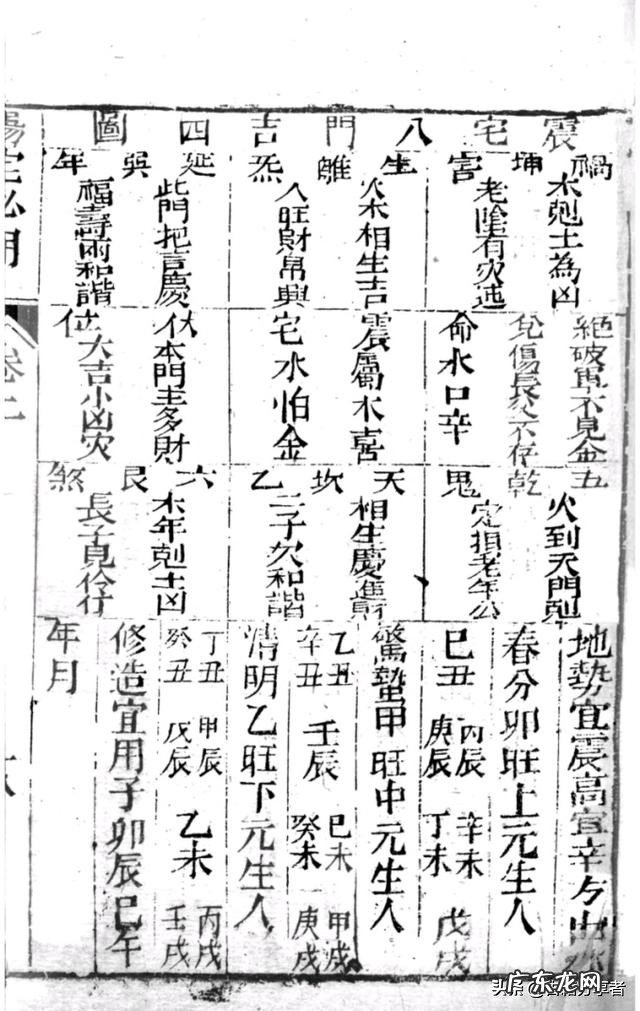 震宅八門吉四圖
禍
木剋土為凶
坤
宮
老陰有灾迍
生
火木相生吉
離
炁
人旺財帛興
延
此門把言慶
巽
年
福壽兩和諧
絕破軍不見金五
兌傷長父不存乾
命水口辛
震屬木喜
宅水怕金
伏本門主多財
位大吉小凶灾
鬼
火到天門剋
定損老年公
天
相生慶進財
坎
乙
二子欠和諧
六
木年剋土凶
艮
煞
長子見伶仃
地勢宜震高宜辛方出
春分卯旺上元生人
己丑 丙辰 庚辰 辛未 丁未 戊戌
驚蟄甲旺中元生人
乙丑 辛丑 壬辰 己未 癸未 甲戌 庚戌
清明乙旺下元生人
丁丑 癸丑 甲辰 戊辰 乙未 丙戌 壬戌
修造宜用子卯辰巳午
年月
陽宅必用
卷二
广东龙网